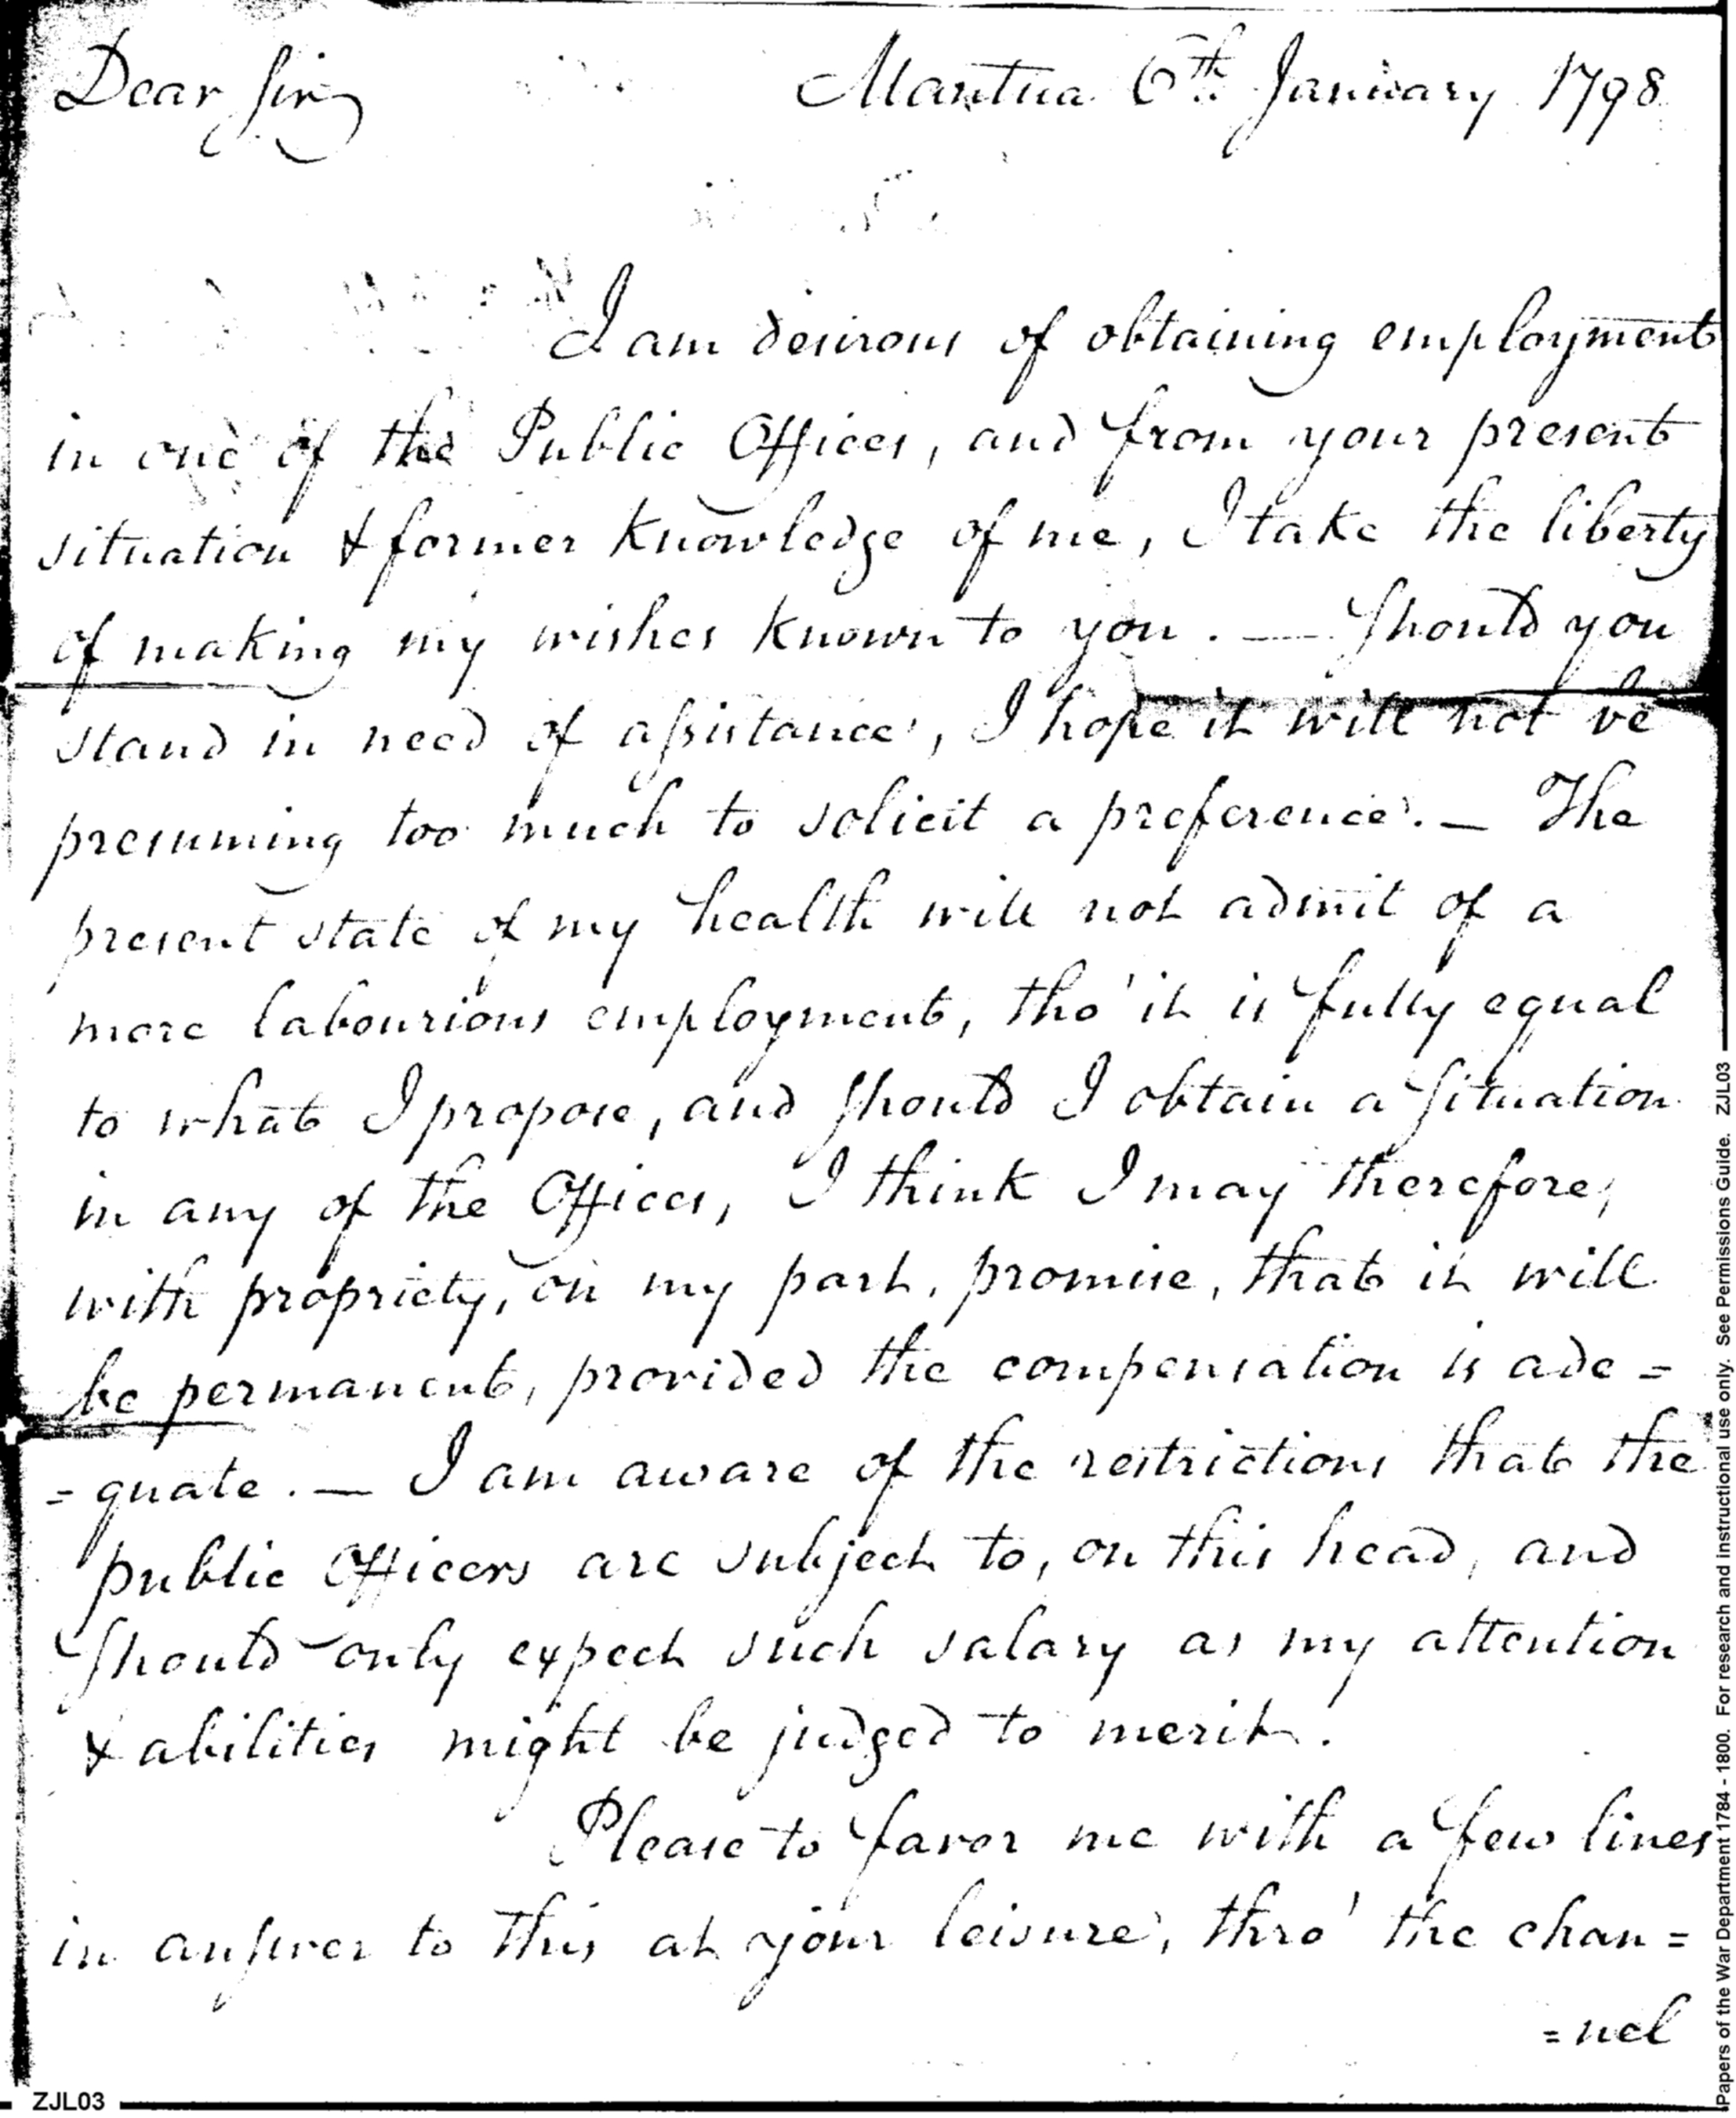 Dear Sir Mantua 6th January 1798
I am desirous of obtaining employment
in one of the Public Offices, and from your present
situation & former knowledge of me, I take the liberty
of making my wishes known to you. — Should you
stand in need of assistance, I hope it will not be
presuming too much to solicit a preference. — The
present state of my health will not admit of a
more labourious employment, tho' it is fully equal
to what I propose, and should I obtain a situation
in any of the Offices, I think I may therefore,
with propriety, on my part, promise, that it will
be permanent, provided the compensation is ade=
=quate. — I am aware of the restrictions that the
public Officers are subject to, on this head, and
should only expect such salary as my attention
& abilities might be judged to merit.
Please to favor me with a few lines
in answer to this at your leisure, thro' the chan=
=nel
ZJL03
Papers of the War Department 1784 - 1800. For research and instructional use only. See Permissions Guide. ZJL03